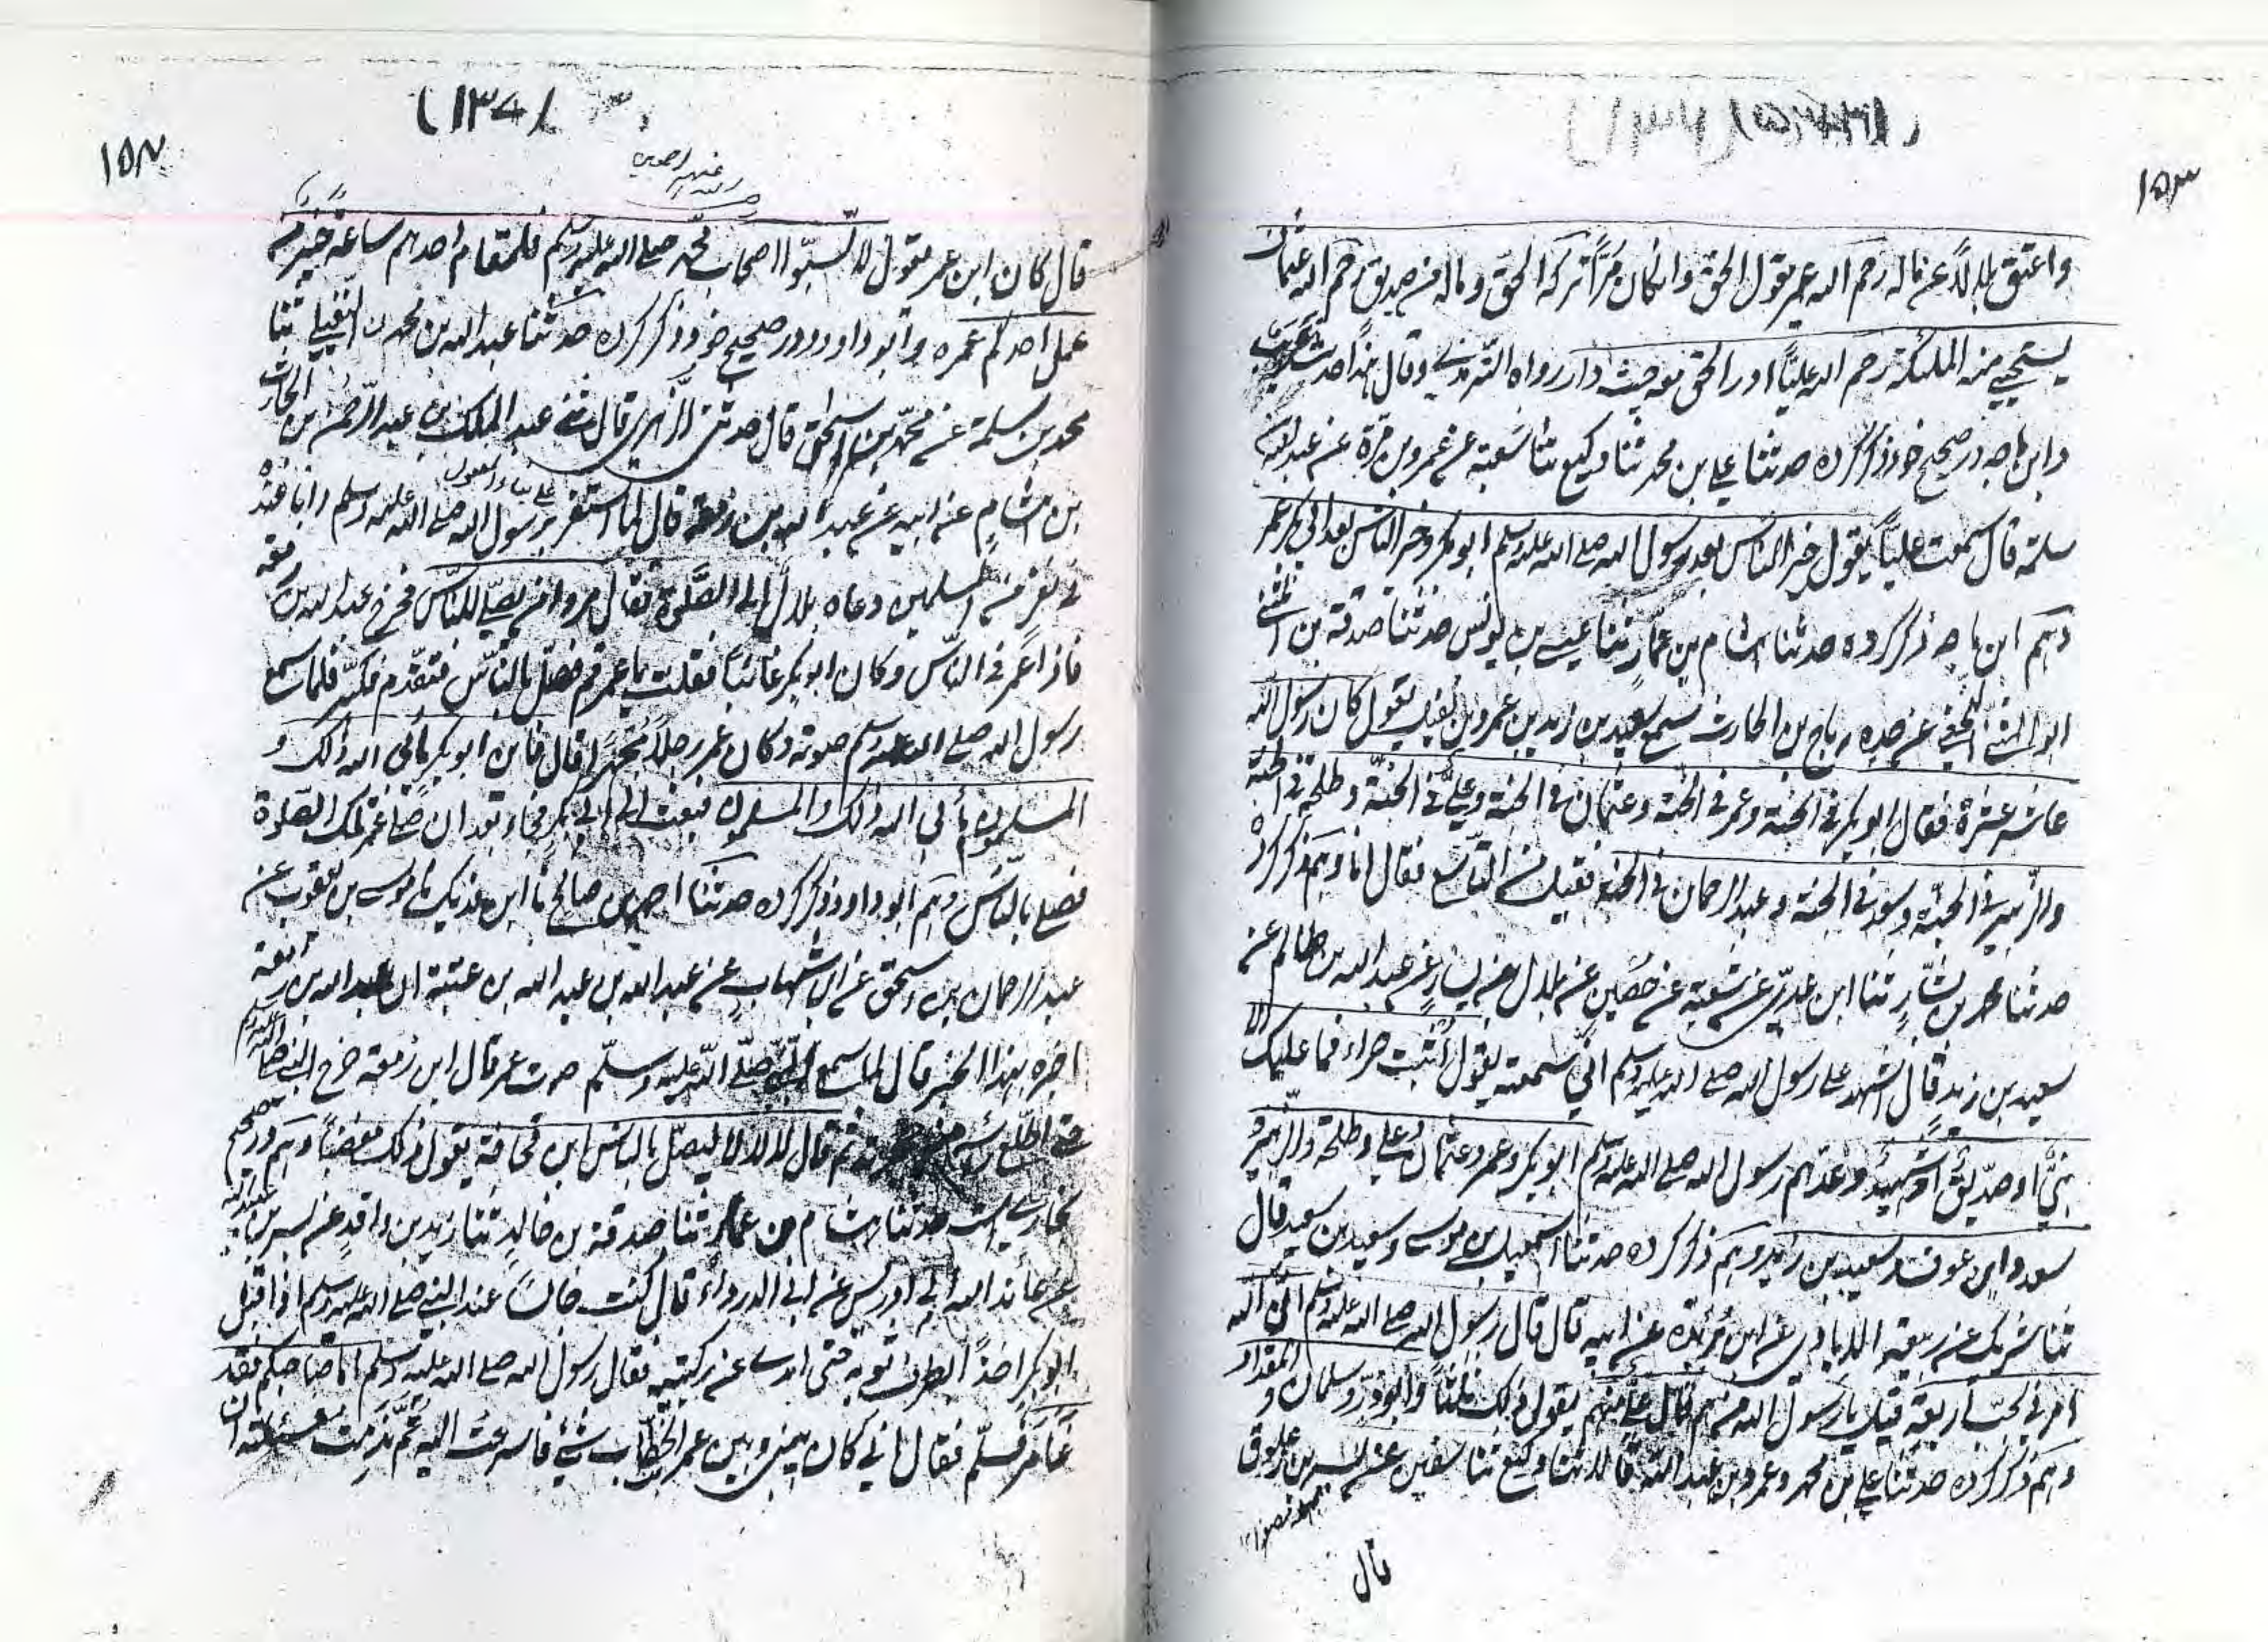 ۱۵۳
واعتق بلالاً عن ماله رحم الله عمر يقول الحق وان كان مرّاً تركه الحق وماله من صديق رحم الله عثمان
يستحيي منه الملئكة رحم الله عليّاً ادر الحق معه حيث دار رواه الترمذي وقال هذا حديث غريب
وابن ماجه در صحيح خود ذكر كرده حدثنا علي بن محمد ثنا وكيع ثنا شعبة عن عمرو بن مرّة عن عبد الله بن
سلمة قال سمعت عليّاً يقول خير الناس بعد رسول الله صلے الله عليه وسلم ابو بكر وخير الناس بعد ابي بكر عمر
وهم ابن ماجه ذكر كرده حدثنا هشام بن عمّار ثنا عيسے بن يونس حدثنا صدقة بن المثنے
ابو المثنے النخعي عن جده رباح بن الحارث سمع سعيد بن زيد بن عمرو بن نفيل يقول كان رسول الله
عاشر عشرة فقال ابو بكر في الجنة وعمر في الجنة وعثمان في الجنة وعليّ في الجنّة وطلحة في الجنة
والزّبير في الجنّة وسعد في الجنة وعبد الرحمان في الجنة فقيل من التاسع فقال انا وهم ذكر كرده
حدثنا محمد بن بشّار ثنا ابن عديّ عن شعبة عن حصين عن هلال بن يسار عن عبد الله بن ظالم عن
سعيد بن زيد قال اشهد علے رسول الله صلے الله عليه وسلم انّي سمعته يقول اثبت حراء فما عليك الا
نبيّ او صدّيق او شهيد وعدّهم رسول الله صلے الله عليه وسلم ابو بكر وعمر وعثمان وعلي وطلحة والزبير و
سعد وابن عوف وسعيد بن زيد وهم ذكر كرده حدثنا اسمعيل بن موسے وسعيد بن سعيد قال
ثنا شريك عن ربيعة الايادي عن ابن بريدة عن ابيه قال قال رسول الله صلے الله عليه وسلم انّ الله
امرني بحبّ اربعة قيل يا رسول الله من هم قال عليّ منهم يقول ذلك ثلثاً وابو ذر وسلمان و المقداد
وهم ذكر كرده حدثنا علي بن محمد وعمرو بن عبد الله قالا ثنا وكيع ثنا سفين عن نسير بن ذعلوق
قال
(۱۳۷)
۱۵۴
رضے الله عنهم اجمعين
قال كان ابن عمر يقول لا تسبّوا اصحاب محمد صلے الله عليه وسلم فلمقام احدهم ساعة خير من
عمل احدكم عمره وابو داود در صحيح خود ذكر كرده حدثنا عبد الله بن محمد النفيلي ثنا
محمد بن سلمة عن محمد بن اسحق قال حدثني الزهري قال ثنے عبد الملك بن عبد الرحمن بن الحارث
بن هشام عن ابيه عن عبد الله بن زمعة قال لما استعز برسول الله صلے الله عليه وسلم وانا عنده
في نفر من المسلمين دعاه بلال الى الصلوة فقال مروا من يصلي للناس فخرج عبد الله بن زمعة
فاذا عمر في الناس وكان ابو بكر غائباً فقلت يا عمر قم فصلّ بالناس فتقدّم فكبّر فلما سمع
رسول الله صلے الله عليه وسلم صوته وكان عمر رجلاً مجهراً قال فاين ابو بكر يأبى الله ذلك و
المسلمون يأبى الله ذلك والمسلمون فبعث الى ابي بكر فجاء بعد ان صلّے عمر تلك الصلوة
فصلے بالناس وهم ابو داود ذكر كرده حدثنا احمد بن صالح ثنا ابن فديك ثنا موسے بن يعقوب عن
عبد الرحمان بن اسحق عن ابن شهاب عن عبد الله بن عبد الله بن عتبة ان عبد الله بن زمعة
اخبره بهذا الخبر قال لما سمع النبي صلّے الله عليه وسلّم صوت عمر قال ابن زمعة خرج النبي صلے الله عليه وسلم
حتے اطلع رأسه من حجرته ثم قال لا لا لا ليصلّ بالناس ابن قحافة يقول ذلك مغضباً وهم در صحيح
بخاري است حدثنا هشام بن عمار ثنا صدقة بن خالد ثنا زيد بن واقد عن بسر بن عبيد الله
عن عائذ الله ابي ادريس عن ابي الدرداء قال كنت جالساً عند النبي صلے الله عليه وسلم اذ اقبل
ابو بكر اخذاً بطرف ثوبه حتى ابدى عن ركبتيه فقال رسول الله صلے الله عليه وسلم امّا صاحبكم فقد
غامر فسلّم فقال اني كان بيني وبين عمر بن الخطاب شئ فاسرعت اليه ثمّ ندمت فسئلته ان